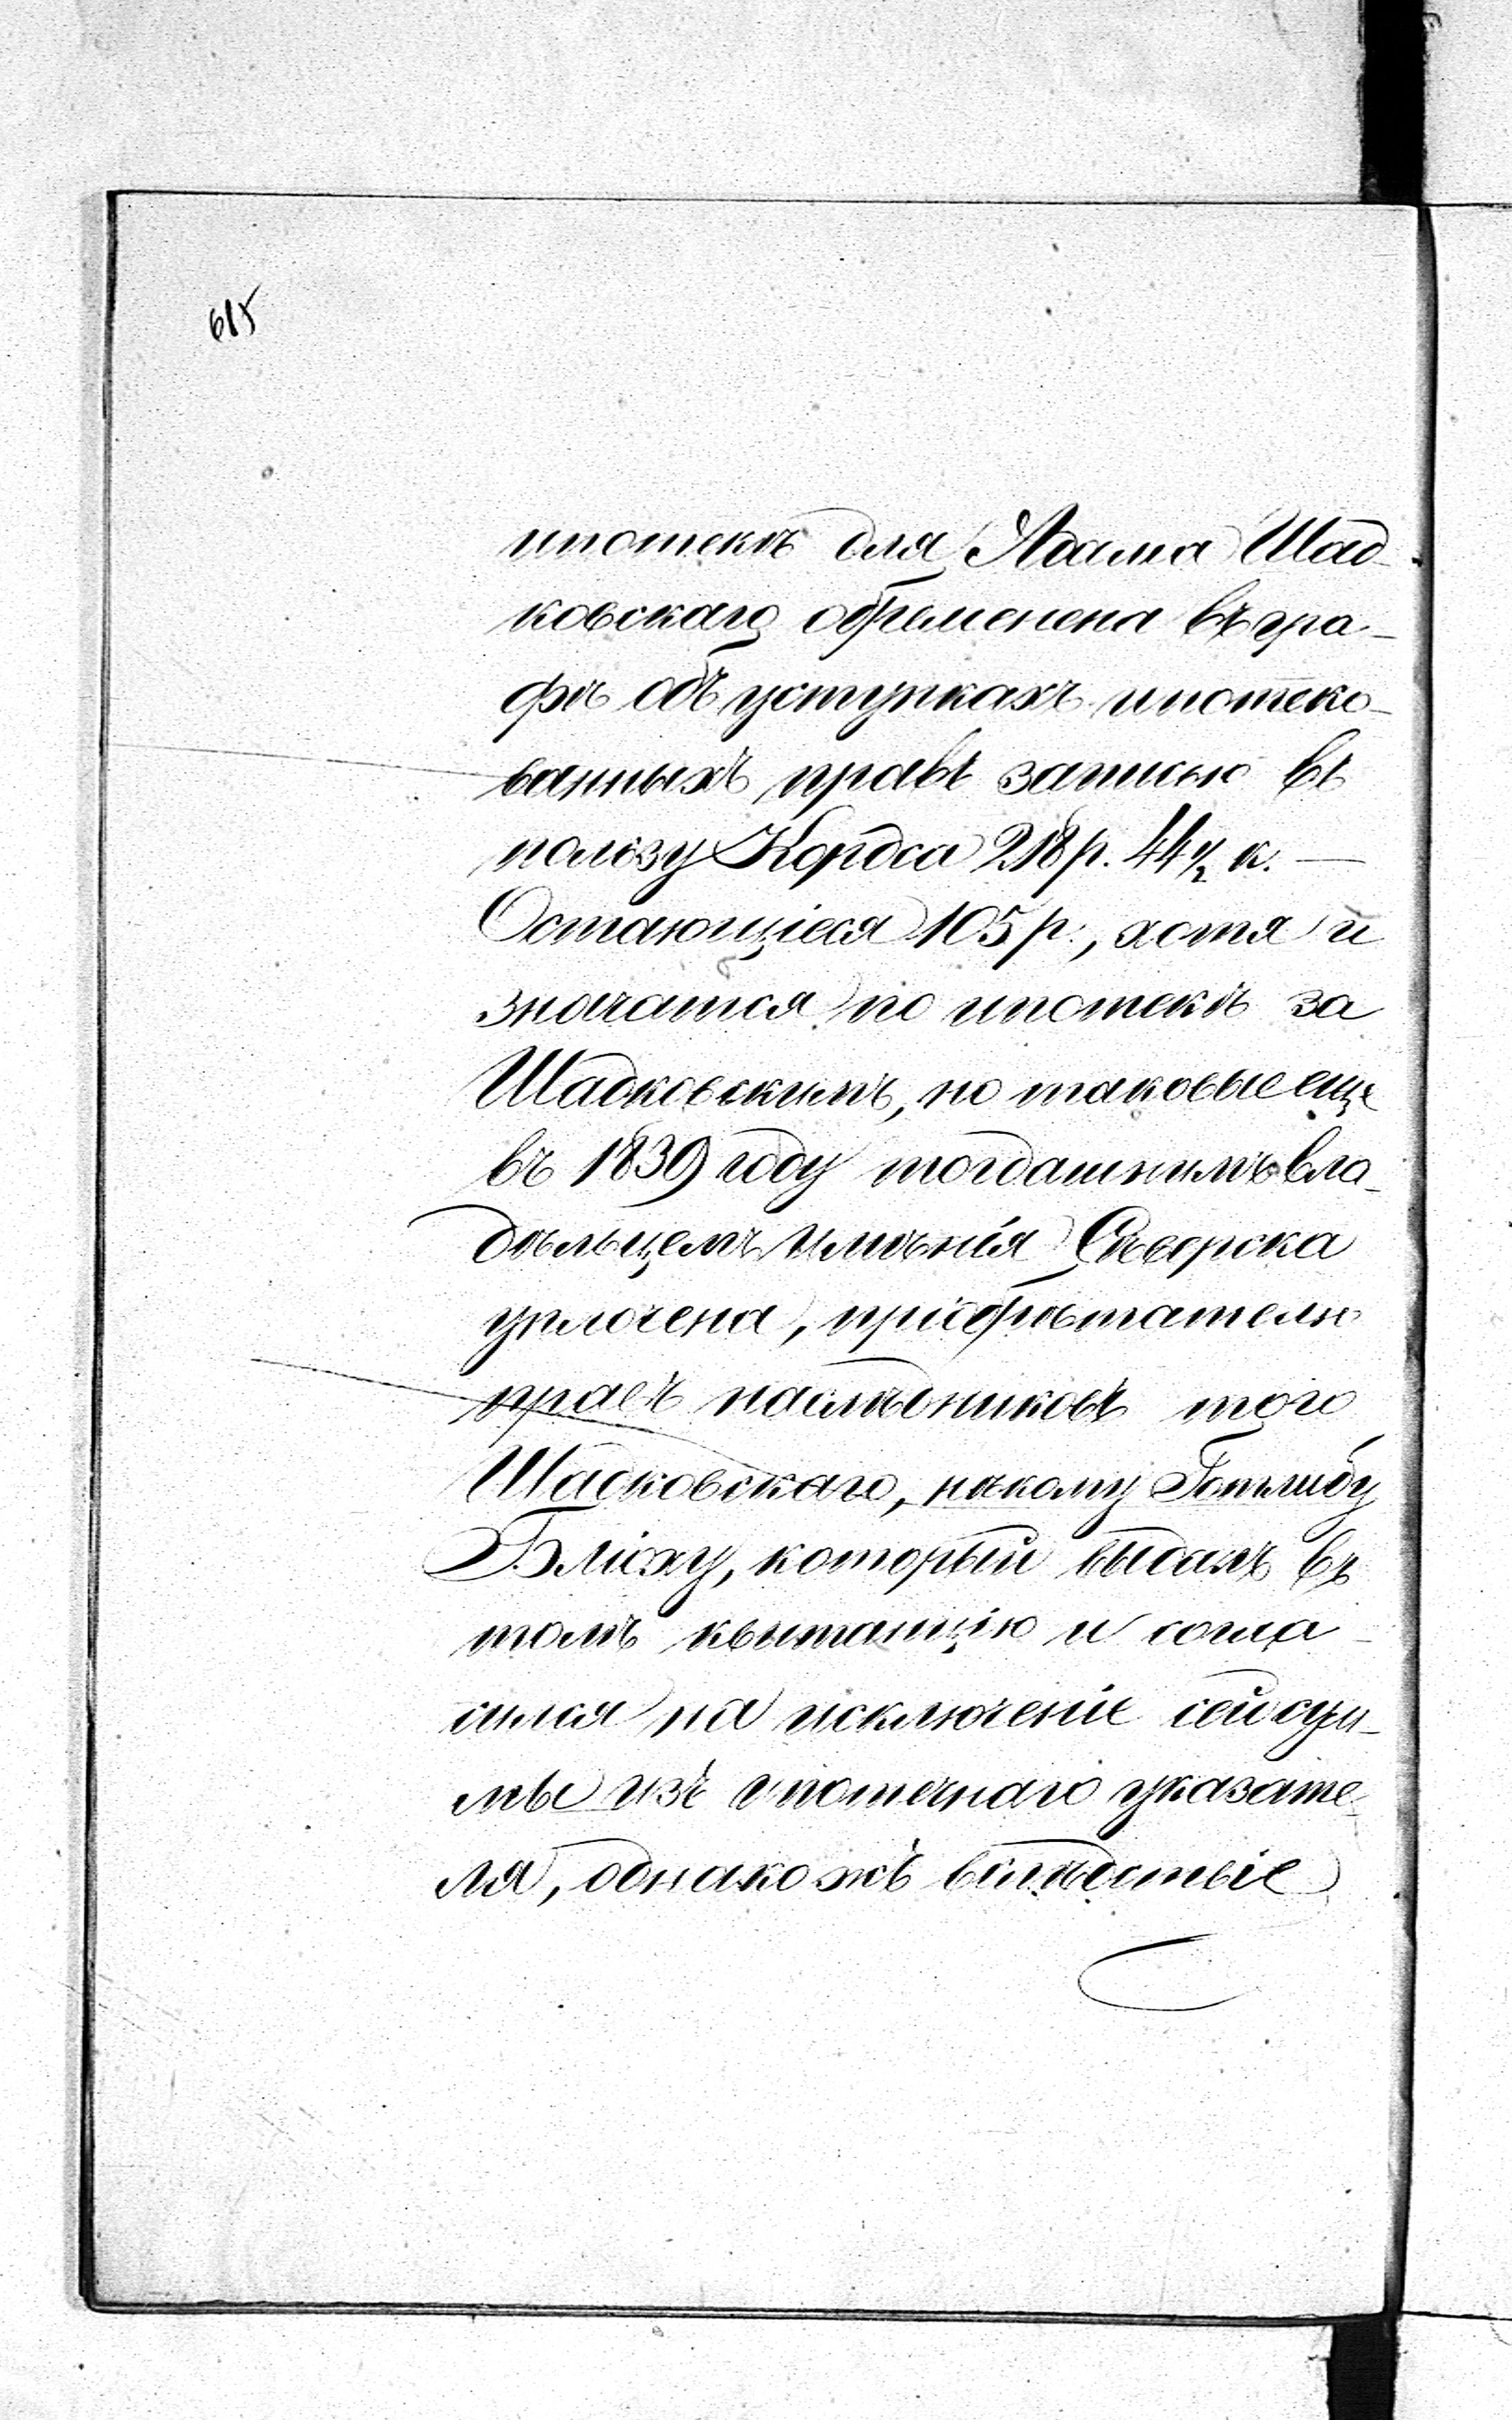 615
ипотекѣ для Адама Шад-
ковскаго обременена въ гра-
фѣ объ уступкахъ ипотеко-
ванныхъ правъ записью въ
пользу Кордса 218 р. 44 1/2 к. —
Остающіеся 105 р., хотя и
значатся по ипотекѣ за
Шадковскимъ, но таковые еще
въ 1839 году тогдашнимъ вла-
дѣльцемъ имѣнія Сѣворска
уплочена, пріобрѣтателю
правъ наслѣдниковъ того
Шадковскаго, нѣкому Готлибу
Блюху, который выдалъ въ
томъ квитанцію и согла-
сился на исключеніе сей сум-
мы изъ ипотечнаго указате-
ля, однако жъ вслѣдствіе